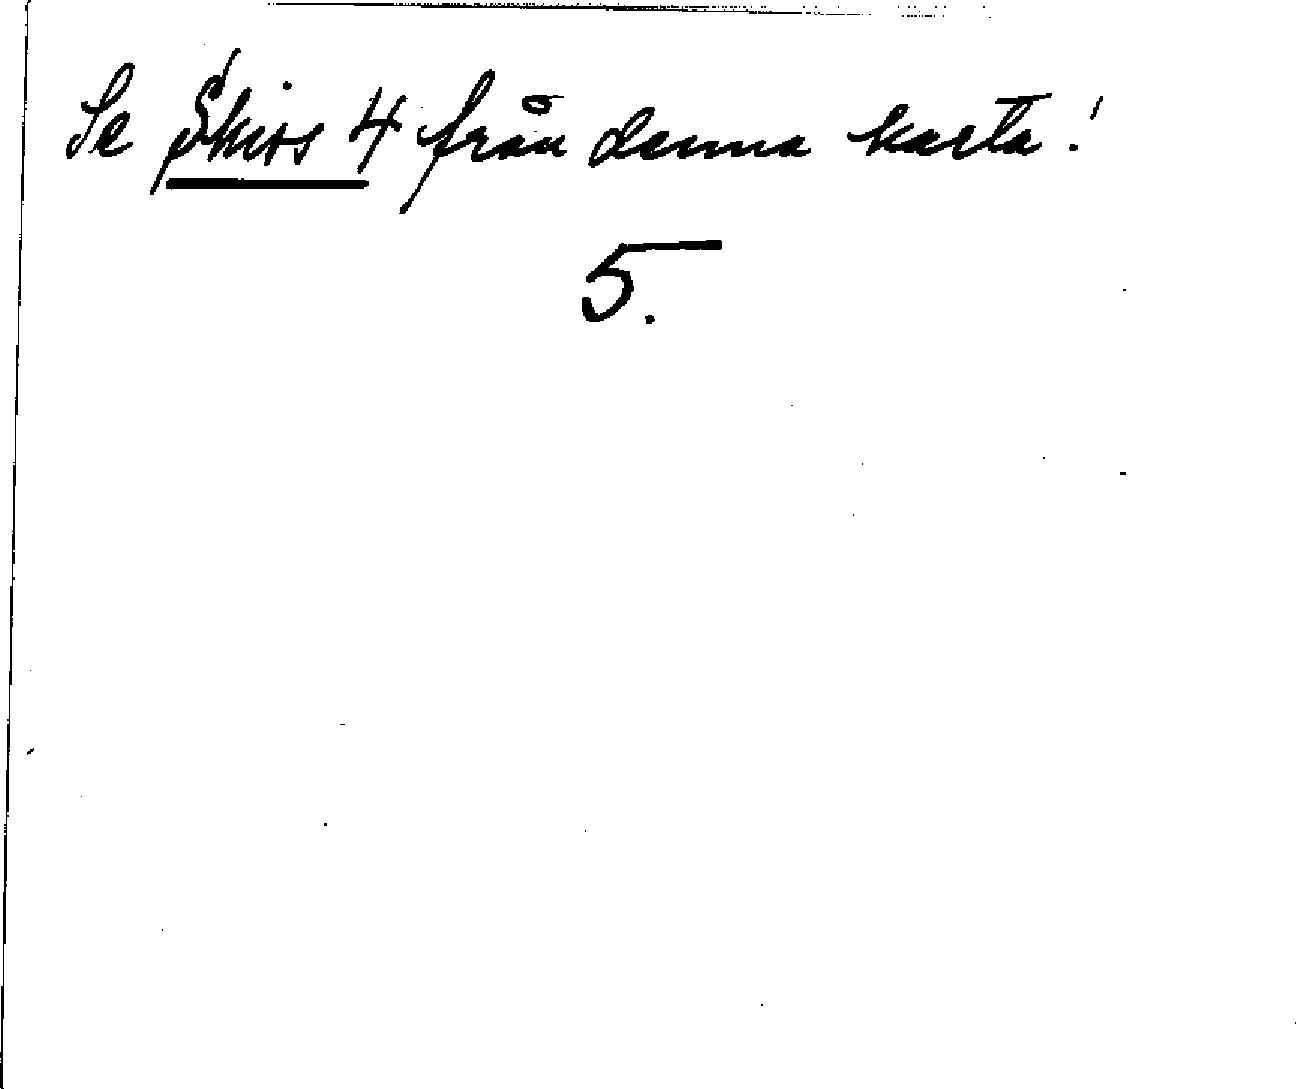 Se Skirs 4 från denna karta!
5.